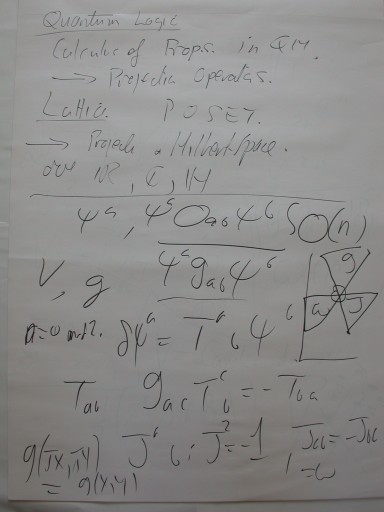 Quantum Logic
Calculus of Props. in QM.
→ Projection Operators.
Lattice. POSET.
→ Projects Hilbert Space.
over ℝ, ℂ, ℍ
ψᵃ, ψᵃ O_ab ψᵇ SO(n)
V, g ψᵃ g_ab ψᵇ
g
a J
n=0 mod 2. δψᵃ = Tᵃ_b ψᵇ
T_ab g_ac Tᶜ_b = -T_ba
g(JX, JY) Jᵃ_b : J² = -1 J_ab = -J_ba
= g(X,Y) = ω